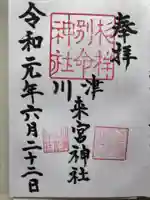 奉拝
杉桙
別命
神社
川津
来宮神社
令和元年六月二十二日